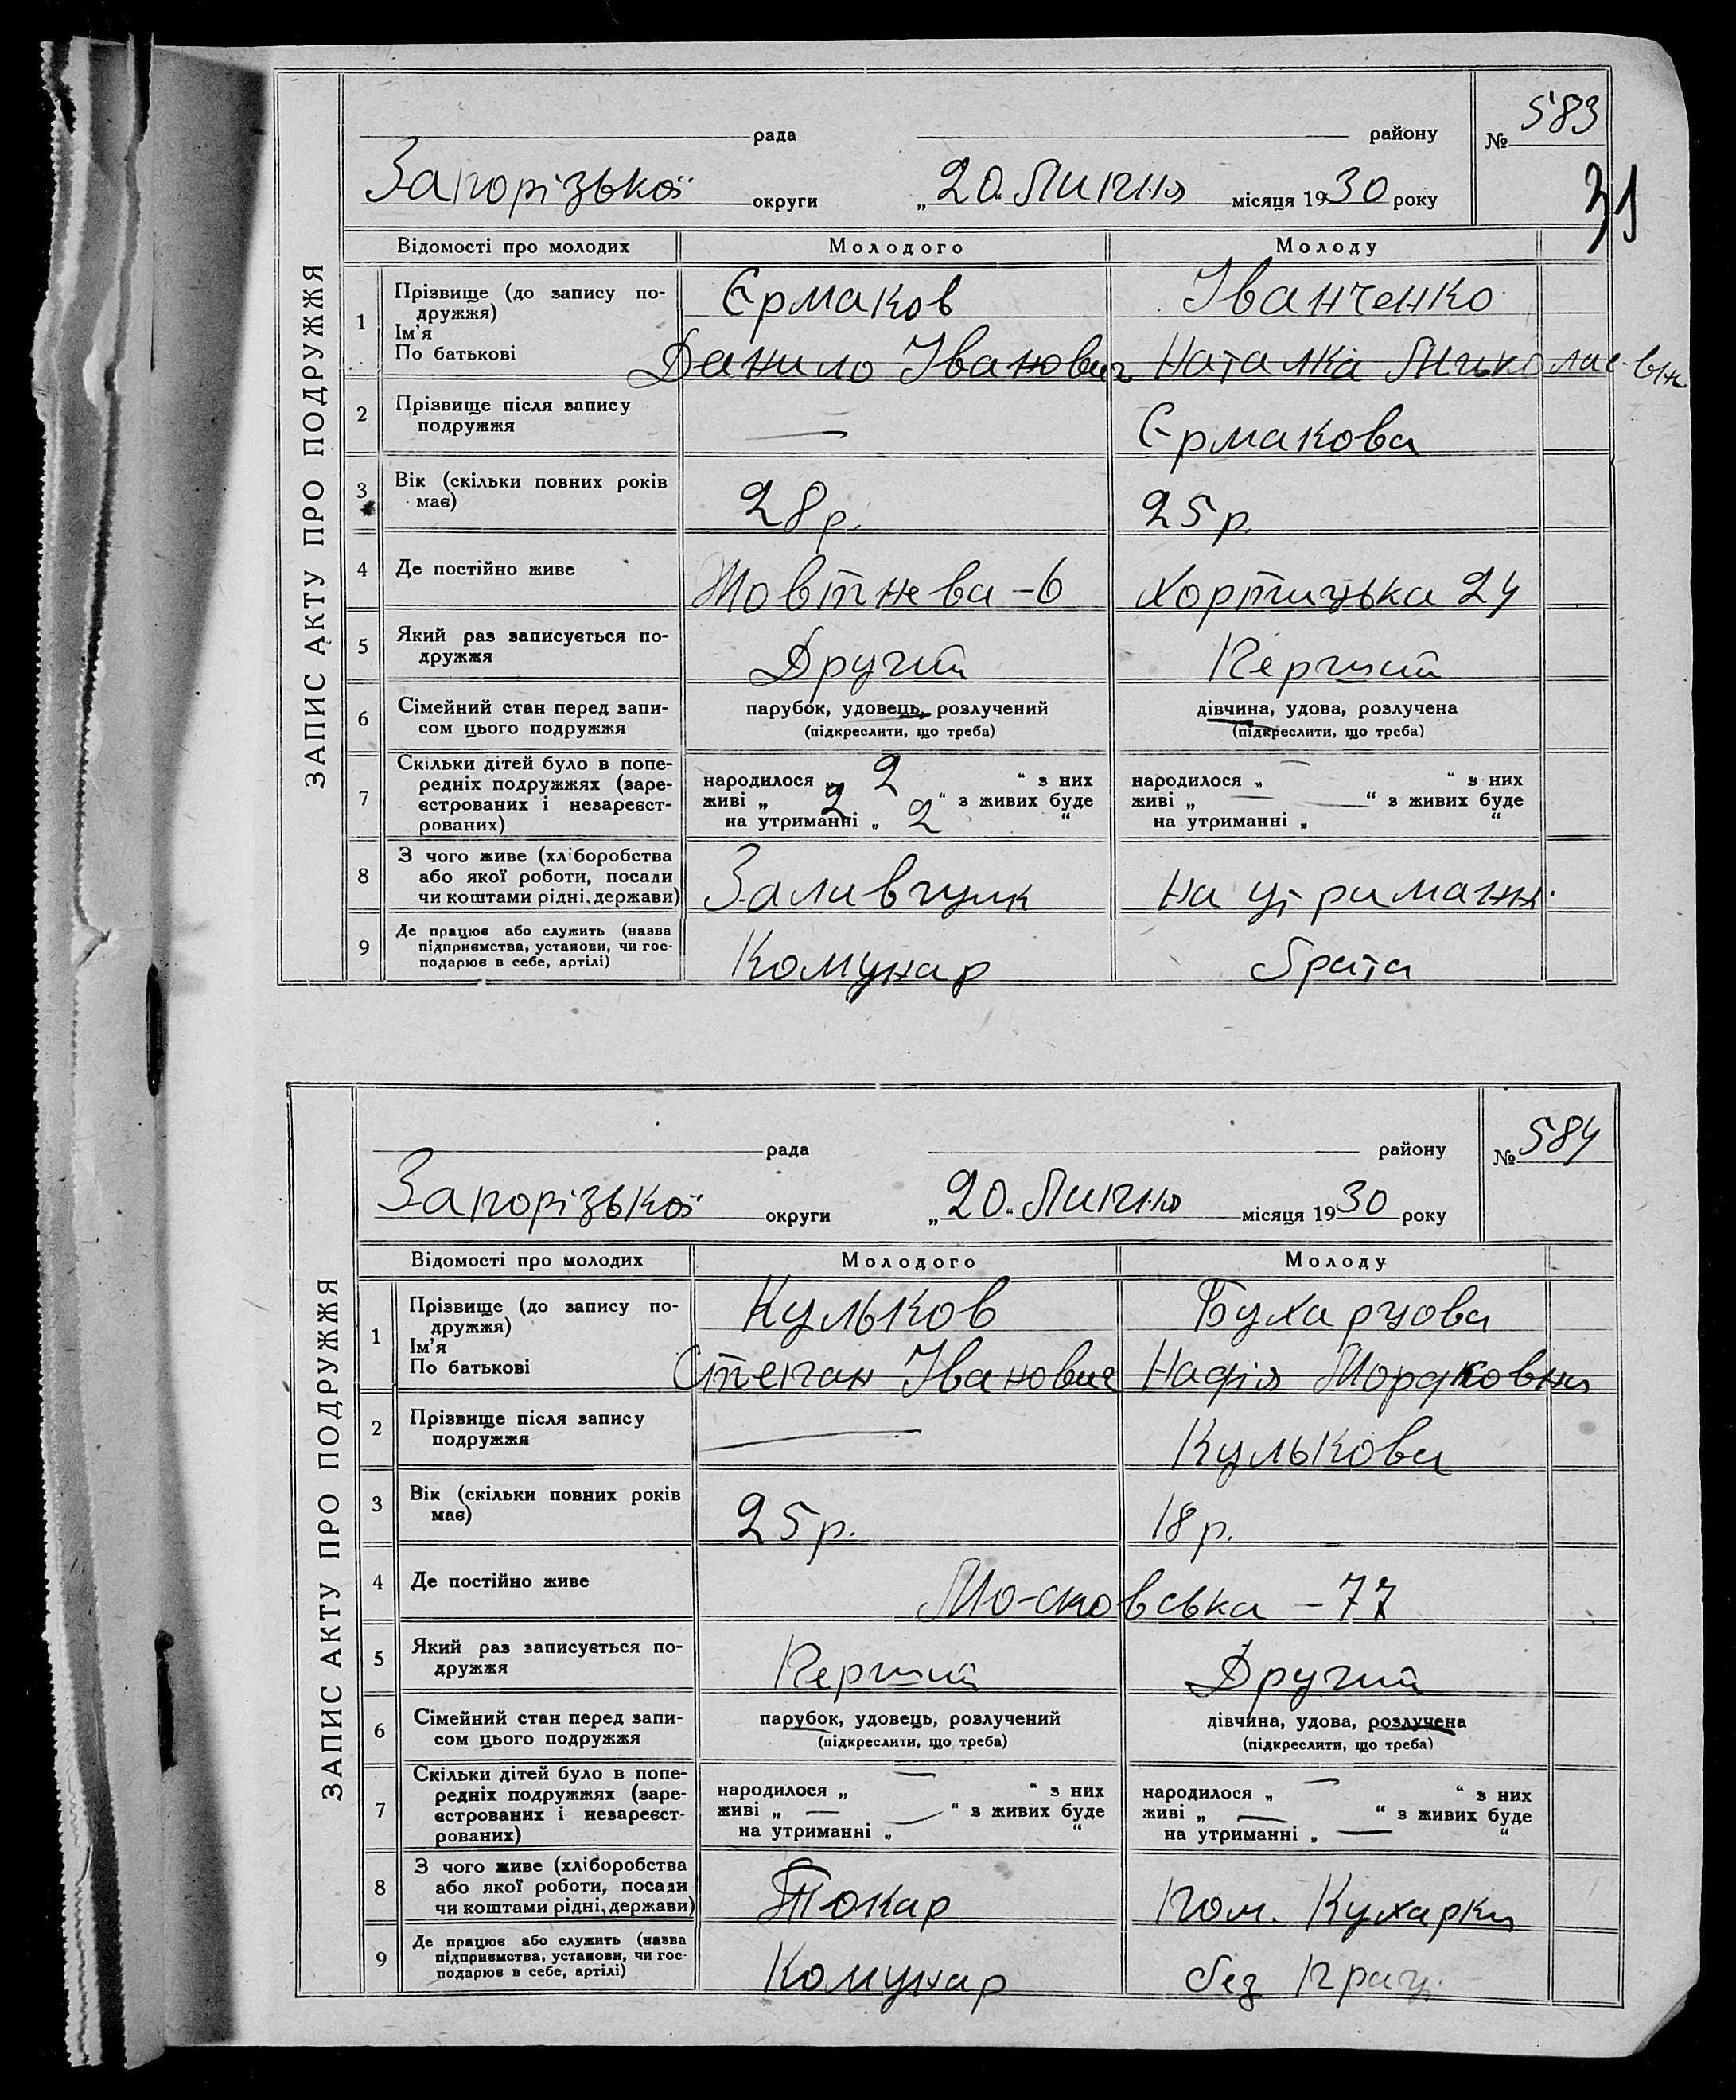 ЗАПИС АКТУ ПРО ПОДРУЖЖЯ
рада району № 583
Запорізької округи „20" Липня місяця 1930 року
31
Відомості про молодих Молодого Молоду
1 Прізвище (до запису подружжя) Єрмаков Іванченко
Ім'я
По батькові Данило Іванович Наталка Миколаєвн
2 Прізвище після запису подружжя — Єрмакова
3 Вік (скільки повних років має) 28 р. 25 р.
4 Де постійно живе Жовтнева-6 Хортицька 24
5 Який раз записується подружжя Другий Перший
6 Сімейний стан перед записом цього подружжя парубок, удовець, розлучений дівчина, удова, розлучена
(підкреслити, що треба) (підкреслити, що треба)
7 Скільки дітей було в попередніх подружжях (зареєстрованих і незареєстрованих)
народилося „ 2 " з них народилося „ — " з них
живі „ 2 " з живих буде живі „ — " з живих буде
на утриманні „ 2 " на утриманні „ — "
8 З чого живе (хліборобства або якої роботи, посади чи коштами рідні, держави) Заливщик на утриманн.
9 Де працює або служить (назва підприємства, установи, чи господарює в себе, артілі) Комунар брата
ЗАПИС АКТУ ПРО ПОДРУЖЖЯ
рада району № 584
Запорізької округи „20" Липня місяця 1930 року
Відомості про молодих Молодого Молоду
1 Прізвище (до запису подружжя) Кульков Бухарцова
Ім'я
По батькові Степан Іванович Надія Мордковна
2 Прізвище після запису подружжя — Кулькова
3 Вік (скільки повних років має) 25 р. 18 р.
4 Де постійно живе Московська - 77
5 Який раз записується подружжя Перший Другий
6 Сімейний стан перед записом цього подружжя парубок, удовець, розлучений дівчина, удова, розлучена
(підкреслити, що треба) (підкреслити, що треба)
7 Скільки дітей було в попередніх подружжях (зареєстрованих і незареєстрованих)
народилося „ — " з них народилося „ — " з них
живі „ — " з живих буде живі „ — " з живих буде
на утриманні „ — " на утриманні „ — "
8 З чого живе (хліборобства або якої роботи, посади чи коштами рідні, держави) Токар пом. Кухарки
9 Де працює або служить (назва підприємства, установи, чи господарює в себе, артілі) Комунар без прац.